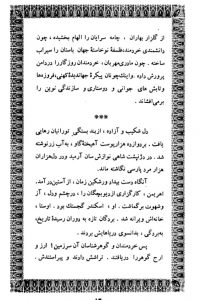 از گلزار بهاران ، چامه سرایان را الهام بخشیده، چون
دانشمندی خردمندفلسفهٔ نوخاستهٔ جهان باستان را سیراب
ساخته . چون مادری‌مهربان، خردمندان روزگاررا دردامن
پرورش داده وابنك‌چونان پیکرهٔ جهاندیدهٔ‌کهنی‌فروزه‌ها
وتابش های جوانی و دوستاری و سازندگی نوین را
برمی‌افشاند .
***
دل شکیب و آزاده ، ازبند بستگی تورانیان رهایی
یافت . بردوازده هزارپوست آهیخته‌گاو، به‌آب زرنوشته
شد . در دژنپشت شاهی نوازش سان آرمید ورر دل‌هزاران
هزار مرد پارسی نگاشته ماند.
آنگاه دست بیداد ورشکین زمان ، از آستین‌درآمد.
اهریمن ، کارگزاری از دیوبچگان را ، درچشم ودل ، آز
وشهوت برگماشت . او ، اسکندر گجستان بود . اوستا ،
خانه‌اش ویرانه شد . بردگان تازه به دوران رسیدهٔ تاریخ،
به‌بردگی ، بدانسوی دریاهایش بردند .
پس خردمندان و گوهرشناسان آن سرزمین۱ ارز و
ارج گوهررا دریافتند . تراشش دادند و پیراستندش .